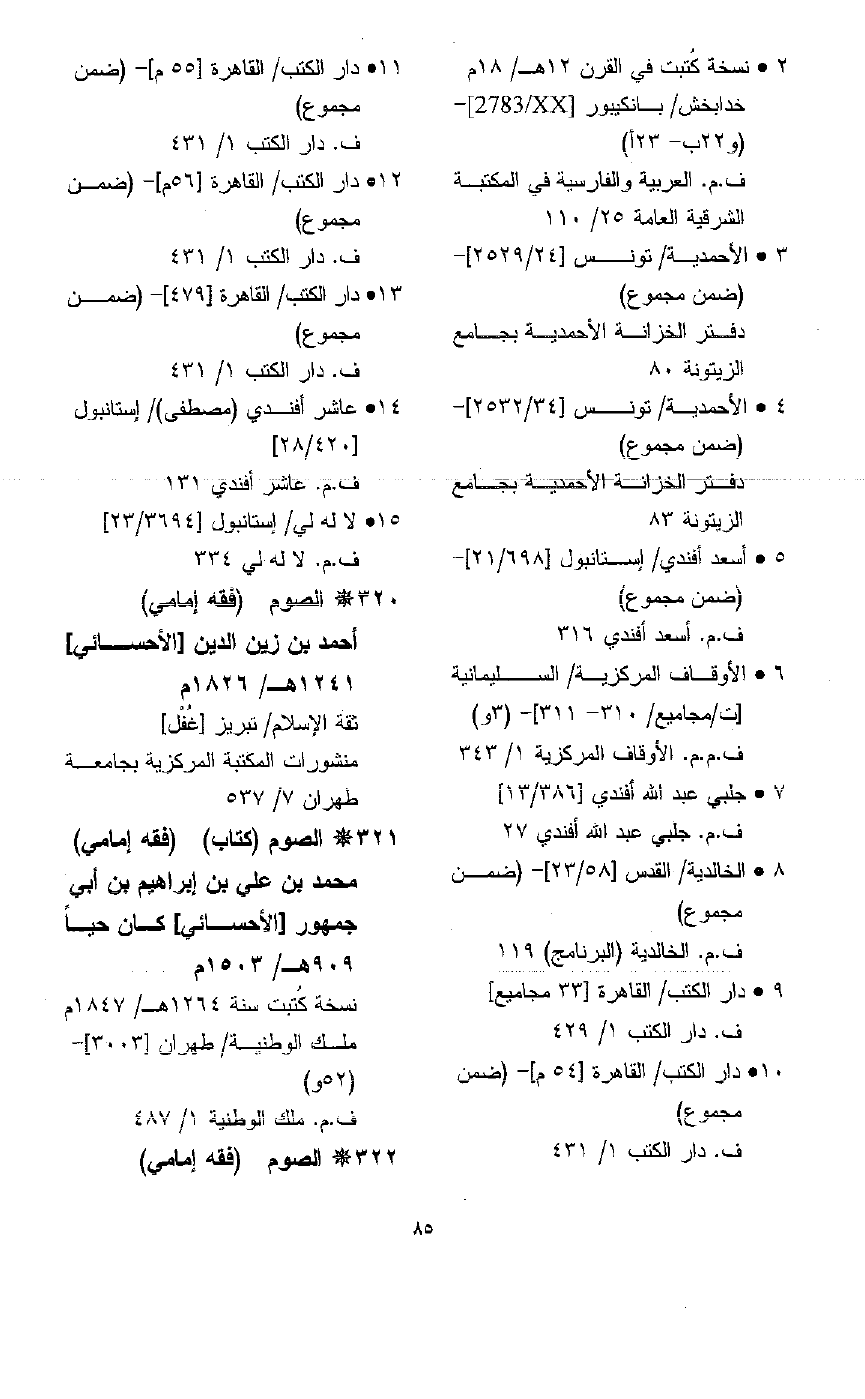 ٢ • نسخة كُتبت في القرن ١٢هـ/ ١٨م
خدابخش/ بانكيبور [2783/XX]-
(و٢٢ب- ٢٣أ)
ف.م. العربية والفارسية في المكتبة
الشرقية العامة ٢٥/ ١١٠
٣ • الأحمدية/ تونس [٢٥٢٩/٢٤]-
(ضمن مجموع)
دفتر الخزانة الأحمدية بجامع
الزيتونة ٨٠
٤ • الأحمدية/ تونس [٢٥٣٢/٣٤]-
(ضمن مجموع)
دفتر الخزانة الأحمدية بجامع
الزيتونة ٨٣
٥ • أسعد أفندي/ إستانبول [٢١/٦٩٨]-
(ضمن مجموع)
ف.م. أسعد أفندي ٣١٦
٦ • الأوقاف المركزية/ السليمانية
[ت/مجاميع/ ٣١٠- ٣١١]- (٣و)
ف.م.م. الأوقاف المركزية ١/ ٣٤٣
٧ • جلبي عبد الله أفندي [١٣/٣٨٦]
ف.م. جلبي عبد الله أفندي ٢٧
٨ • الخالدية/ القدس [٢٣/٥٨]- (ضمن
مجموع)
ف.م. الخالدية (البرنامج) ١١٩
٩ • دار الكتب/ القاهرة [٣٣ مجاميع]
ف. دار الكتب ١/ ٤٢٩
١٠• دار الكتب/ القاهرة [٥٤ م]- (ضمن
مجموع)
ف. دار الكتب ١/ ٤٣١
١١• دار الكتب/ القاهرة [٥٥ م]- (ضمن
مجموع)
ف. دار الكتب ١/ ٤٣١
١٢• دار الكتب/ القاهرة [٥٦م]- (ضمن
مجموع)
ف. دار الكتب ١/ ٤٣١
١٣• دار الكتب/ القاهرة [٤٧٩]- (ضمن
مجموع)
ف. دار الكتب ١/ ٤٣١
١٤• عاشر أفندي (مصطفى)/ إستانبول
[٢٨/٤٢٠]
ف.م. عاشر أفندي ١٣١
١٥• لا له لي/ إستانبول [٢٣/٣٦٩٤]
ف.م. لا له لي ٣٣٤
٣٢٠❋ الصوم (فقه إمامي)
أحمد بن زين الدين [الأحسائي]
١٢٤١هـ/ ١٨٢٦م
ثقة الإسلام/ تبريز [غُفْل]
منشورات المكتبة المركزية بجامعة
طهران ٧/ ٥٣٧
٣٢١❋ الصوم (كتاب) (فقه إمامي)
محمد بن علي بن إبراهيم بن أبي
جمهور [الأحسائي] كان حياً
٩٠٩هـ/ ١٥٠٣م
نسخة كُتبت سنة ١٢٦٤هـ/ ١٨٤٧م
ملك الوطنية/ طهران [٣٠٠٣]-
(٥٢و)
ف.م. ملك الوطنية ١/ ٤٨٧
٣٢٢❋ الصوم (فقه إمامي)
٨٥